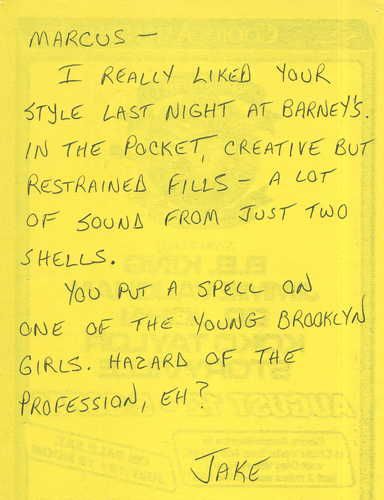 MARCUS —
I REALLY LIKED YOUR
STYLE LAST NIGHT AT BARNEY'S.
IN THE POCKET, CREATIVE BUT
RESTRAINED FILLS — A LOT
OF SOUND FROM JUST TWO
SHELLS.
YOU PUT A SPELL ON
ONE OF THE YOUNG BROOKLYN
GIRLS. HAZARD OF THE
PROFESSION, EH?
JAKE
B.B. KING
AUGUST